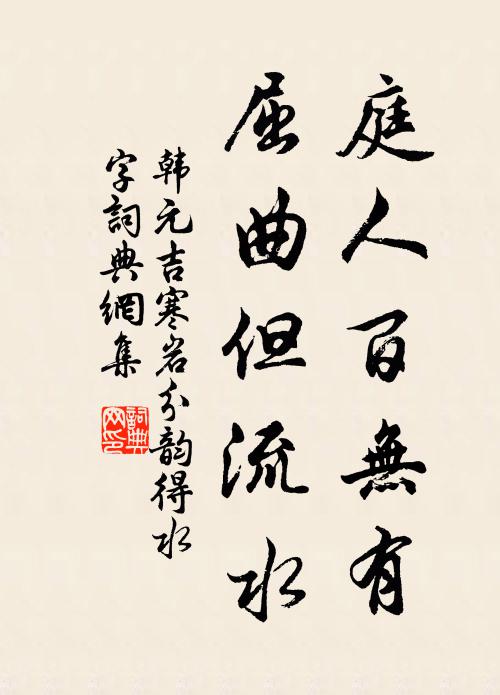 庭人百無有
屈曲但流水
韩元吉寒岩分韵得水
字詞典網集
詞典
网印